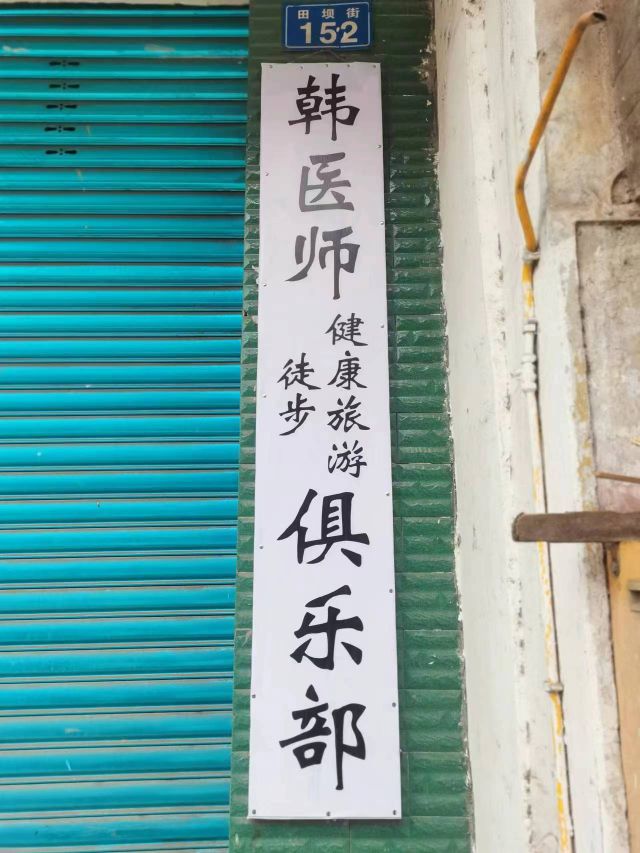 田坝街
152
韩医师
健康旅游
徒步
俱乐部